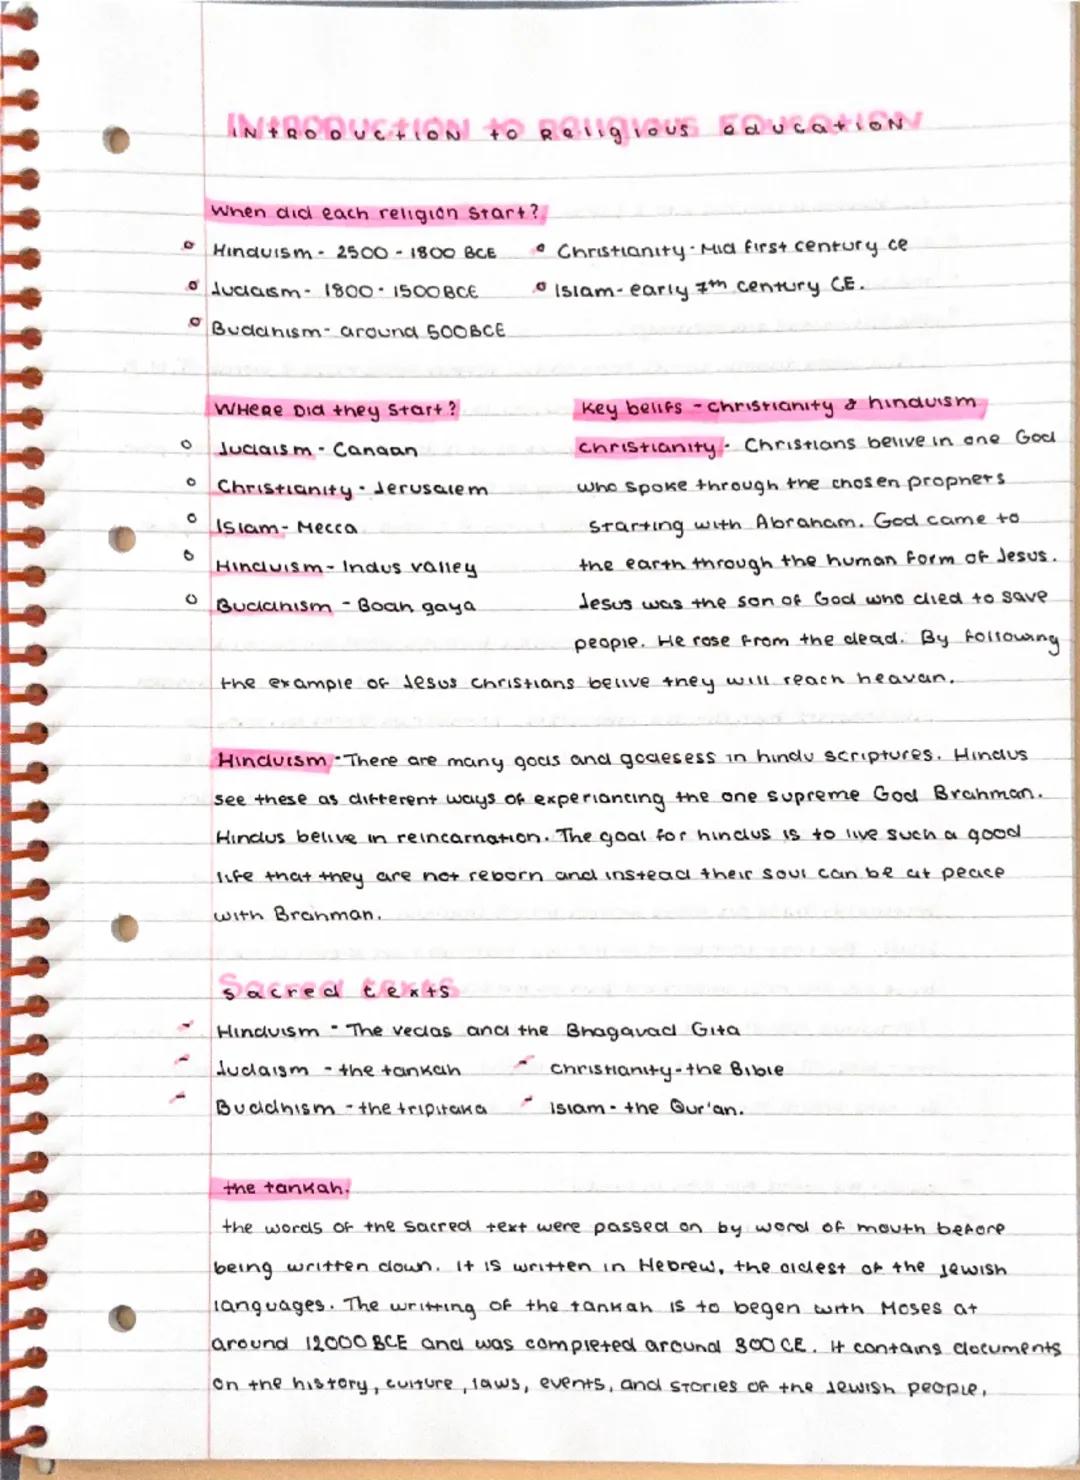 INtRODUCtION to Religious education
When did each religion start?
Hinduism - 2500 - 1800 BCE
Christianity - Mid first century ce
Judaism - 1800 - 1500 BCE
Islam - early 7th century CE.
Buddhism - around 500BCE
WHeRe Did they Start?
Judaism - Canaan
Christianity - Jerusalem
Islam - Mecca
Hinduism - Indus valley
Buddhism - Boah gaya
Key belifs - christianity & hinduism
christianity - Christians belive in one God
who spoke through the chosen prophets
starting with Abraham. God came to
the earth through the human form of Jesus.
Jesus was the son of God who died to save
people. He rose from the dead. By following
the example of Jesus christians belive they will reach heavan.
Hinduism - There are many gods and godesess in hindu scriptures. Hindus
see these as different ways of experiancing the one supreme God Brahman.
Hindus belive in reincarnation. The goal for hindus is to live such a good
life that they are not reborn and instead their soul can be at peace
with Brahman.
Sacred texts
Hinduism - The vedas and the Bhagavad Gita
Judaism - the tankah
christianity - the Bible
Buddhism - the tripitaka
Islam - the Qur'an.
the tankah.
the words of the sacred text were passed on by word of mouth before
being written down. It is written in Hebrew, the oldest of the jewish
languages. The writting of the tankah is to begen with Moses at
around 12000 BCE and was completed around 300 CE. It contains documents
on the history, culture, laws, events, and stories of the Jewish people,